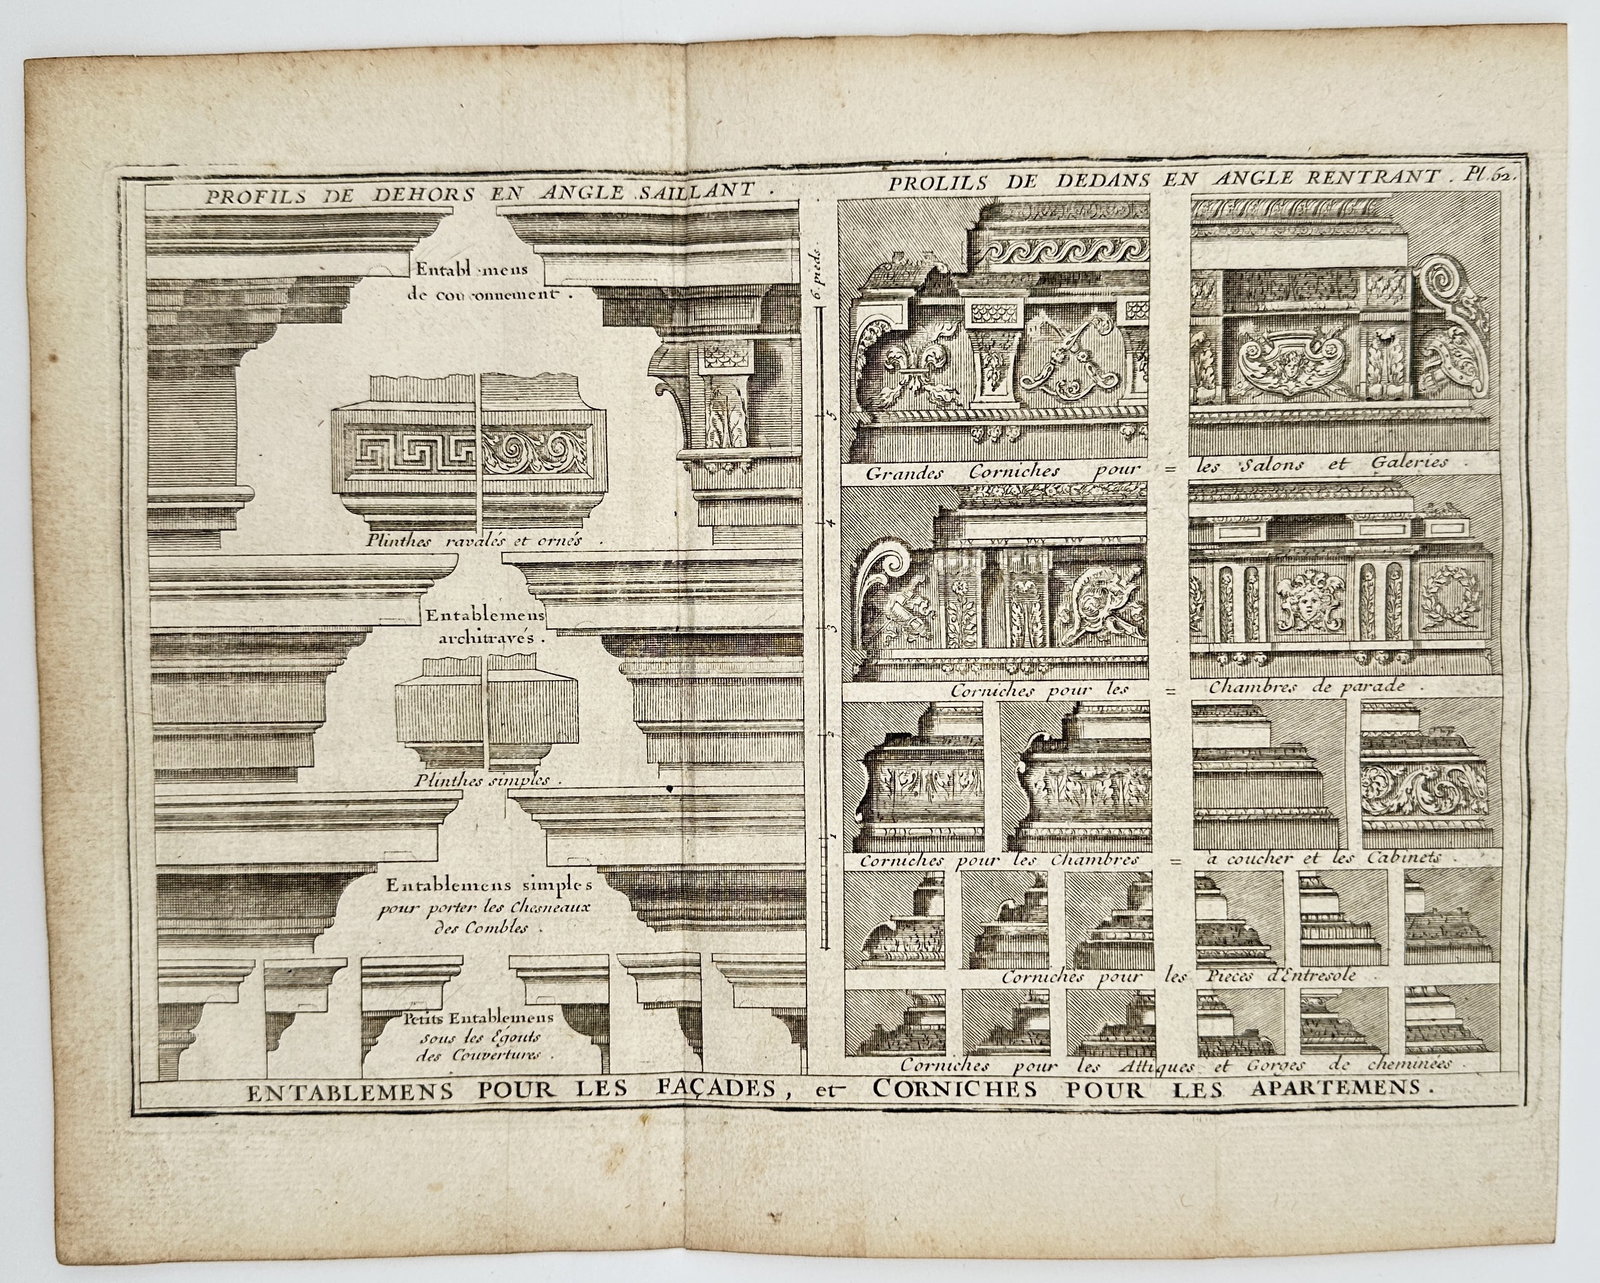 PROFILS DE DEHORS EN ANGLE SAILLANT .
PROLILS DE DEDANS EN ANGLE RENTRANT . Pl. 62.
Entabl mens
de couronnement .
Plinthes ravalés et ornés .
Entablemens
architravés .
Plinthes simples .
Entablemens simples
pour porter les Chesneaux
des Combles .
Petits Entablemens
sous les Égouts
des Couvertures .
6 pieds
5
4
3
2
1
Grandes Corniches pour = les Salons et Galeries .
Corniches pour les = Chambres de parade .
Corniches pour les Chambres = à coucher et les Cabinets .
Corniches pour les Pieces d'Entresole .
Corniches pour les Attiques et Gorges de cheminées .
ENTABLEMENS POUR LES FAÇADES, et CORNICHES POUR LES APARTEMENS .